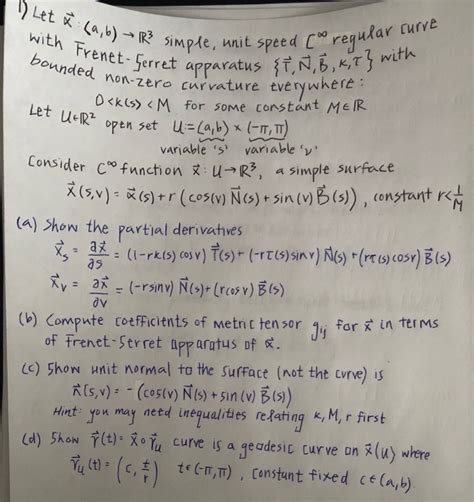 1) Let α⃗: (a,b) → ℝ³ simple, unit speed C^∞ regular curve
with Frenet-Serret apparatus {T⃗, N⃗, B⃗, κ, τ} with
bounded non-zero curvature everywhere:
0<k(s)<M for some constant M∈ℝ
Let U⊂ℝ² open set U:=(a,b) × (-π,π)
variable 's' variable 'v'
Consider C^∞ function x⃗: U→ℝ³, a simple surface
x⃗(s,v) = α⃗(s)+r(cos(v) N⃗(s)+sin(v) B⃗(s)), constant r<1/M
(a) Show the partial derivatives
x⃗ₛ = ∂x⃗/∂s = (1-rk(s) cosv) T⃗(s)+(-rτ(s)sinv) N⃗(s)+(rτ(s)cosv) B⃗(s)
x⃗ᵥ = ∂x⃗/∂v = (-rsinv) N⃗(s)+(rcosv) B⃗(s)
(b) Compute coefficients of metric tensor g_ij for x⃗ in terms
of Frenet-Serret apparatus of α⃗.
(c) Show unit normal to the surface (not the curve) is
n⃗(s,v) = -(cos(v) N⃗(s)+sin(v) B⃗(s))
Hint: you may need inequalities relating k, M, r first
(d) Show γ⃗(t)=x⃗∘γ⃗_u curve is a geodesic curve on x⃗(U) where
γ⃗_u(t) = (c, t/r) t∈(-π,π), constant fixed c∈(a,b).